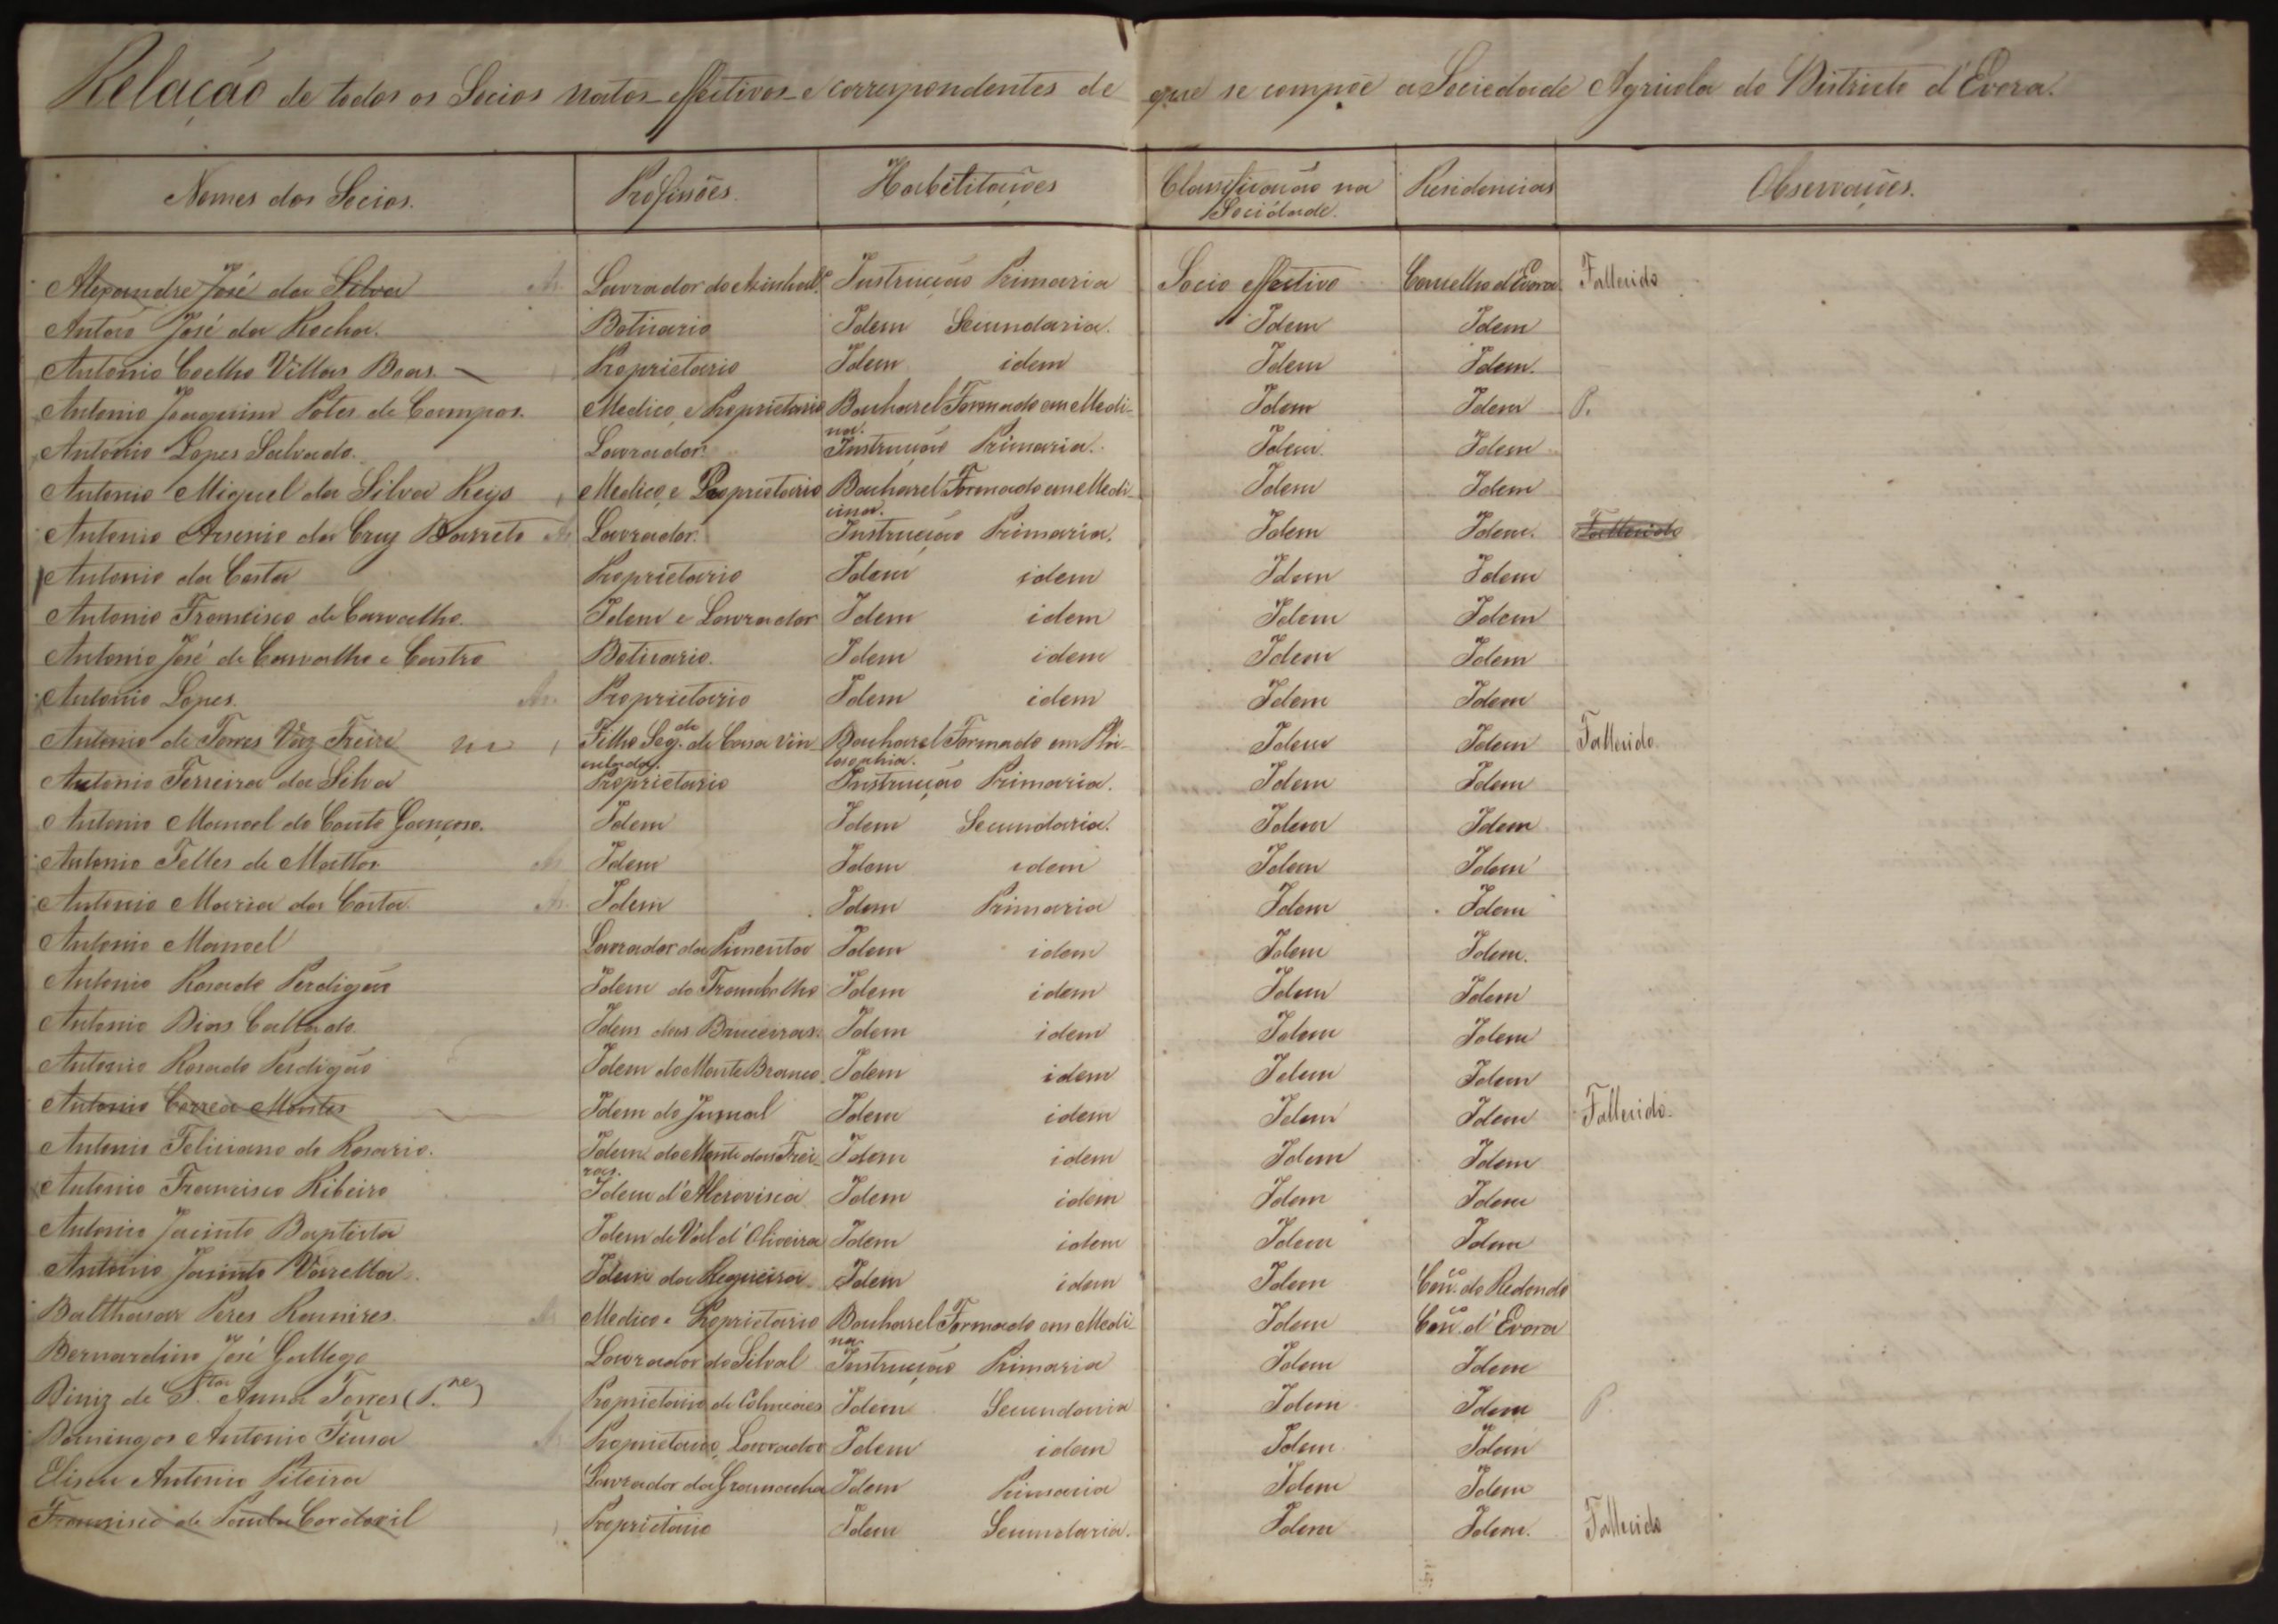 Relação de todos os Socios natos effectivos e correspondentes de que se compõe a Sociedade Agricola do Districto d'Evora.
Nomes dos Socios. Profissões. Habilitações Classificação na Sociedade. Residencias Observações.
Alexandre José da Silva Lavrador do Instrucção Primaria Socio effectivo Concelho d'Evora Fallecido
Antonio José da Rocha. Boticario Idem Secundaria. Idem Idem
Antonio Coelho Villas Boas. Proprietario Idem idem Idem Idem.
Antonio Joaquim Potes de Campos. Medico e Proprietario Bacharel Formado em Medi- Idem Idem P.
na.
Antonio Lopes Salvado. Lavrador. Instrucção Primaria. Idem. Idem
Antonio Miguel da Silva Reys Medico e Proprietario Bacharel Formado em Medi- Idem Idem
cina.
Antonio Arsenio da Cruz Barreto Lavrador. Instrucção Primaria. Idem Idem. Fallecido
Antonio da Costa Proprietario Idem idem Idem Idem
Antonio Francisco de Carvalho. Idem e Lavrador Idem idem Idem Idem
Antonio José de Carvalho e Castro Boticario. Idem idem Idem Idem
Antonio Lopes. Proprietario Idem idem Idem Idem
Antonio de Torres Vaz Freire Filho Seg.do de Casa vin Bacharel Formado em Phi- Idem Idem Fallecido.
culada. losophia.
Antonio Ferreira da Silva Proprietario Instrucção Primaria. Idem Idem
Antonio Manoel do Couto Gançoso. Idem Idem Secundaria. Idem Idem
Antonio Telles de Mattos Idem Idem idem Idem Idem
Antonio Maria da Costa. Idem Idem Primaria Idem Idem
Antonio Manoel Lavrador da Pimenta Idem idem Idem Idem.
Antonio Rosado Perdigão Idem do Trambolho Idem idem Idem Idem
Antonio Dias Callado. Idem das Idem idem Idem Idem
Antonio Rosado Perdigão Idem do Monte Branco Idem idem Idem Idem
Antonio Correa Montes Idem do Idem idem Idem Idem Fallecido.
Antonio Feliciano do Rosario. Idem do Monte das Frei- Idem idem Idem Idem
ras.
Antonio Francisco Ribeiro Idem d' Idem idem Idem Idem
Antonio Jacinto Baptista Idem de Val d'Oliveira Idem idem Idem Idem
Antonio Jacinto Varella. Idem da Regueira Idem idem Idem Con.co do Redondo
Balthasar Peres Ramires. Medico e Proprietario Bacharel Formado em Medi- Idem Con.co d'Evora
na
Bernardino José Gallego Lavrador do Silval Instrucção Primaria Idem Idem
Diniz de S.ta Anna Torres (P.ne) Proprietario de Colmeaes Idem Secundaria Idem Idem P.
Domingos Antonio Fiusa Proprietario, Lavrador Idem idem Idem Idem
Eliseu Antonio Piteira Lavrador da Gramacha Idem Primaria Idem Idem
Francisco de Paula Cordovil Proprietario Idem Secundaria. Idem Idem. Fallecido